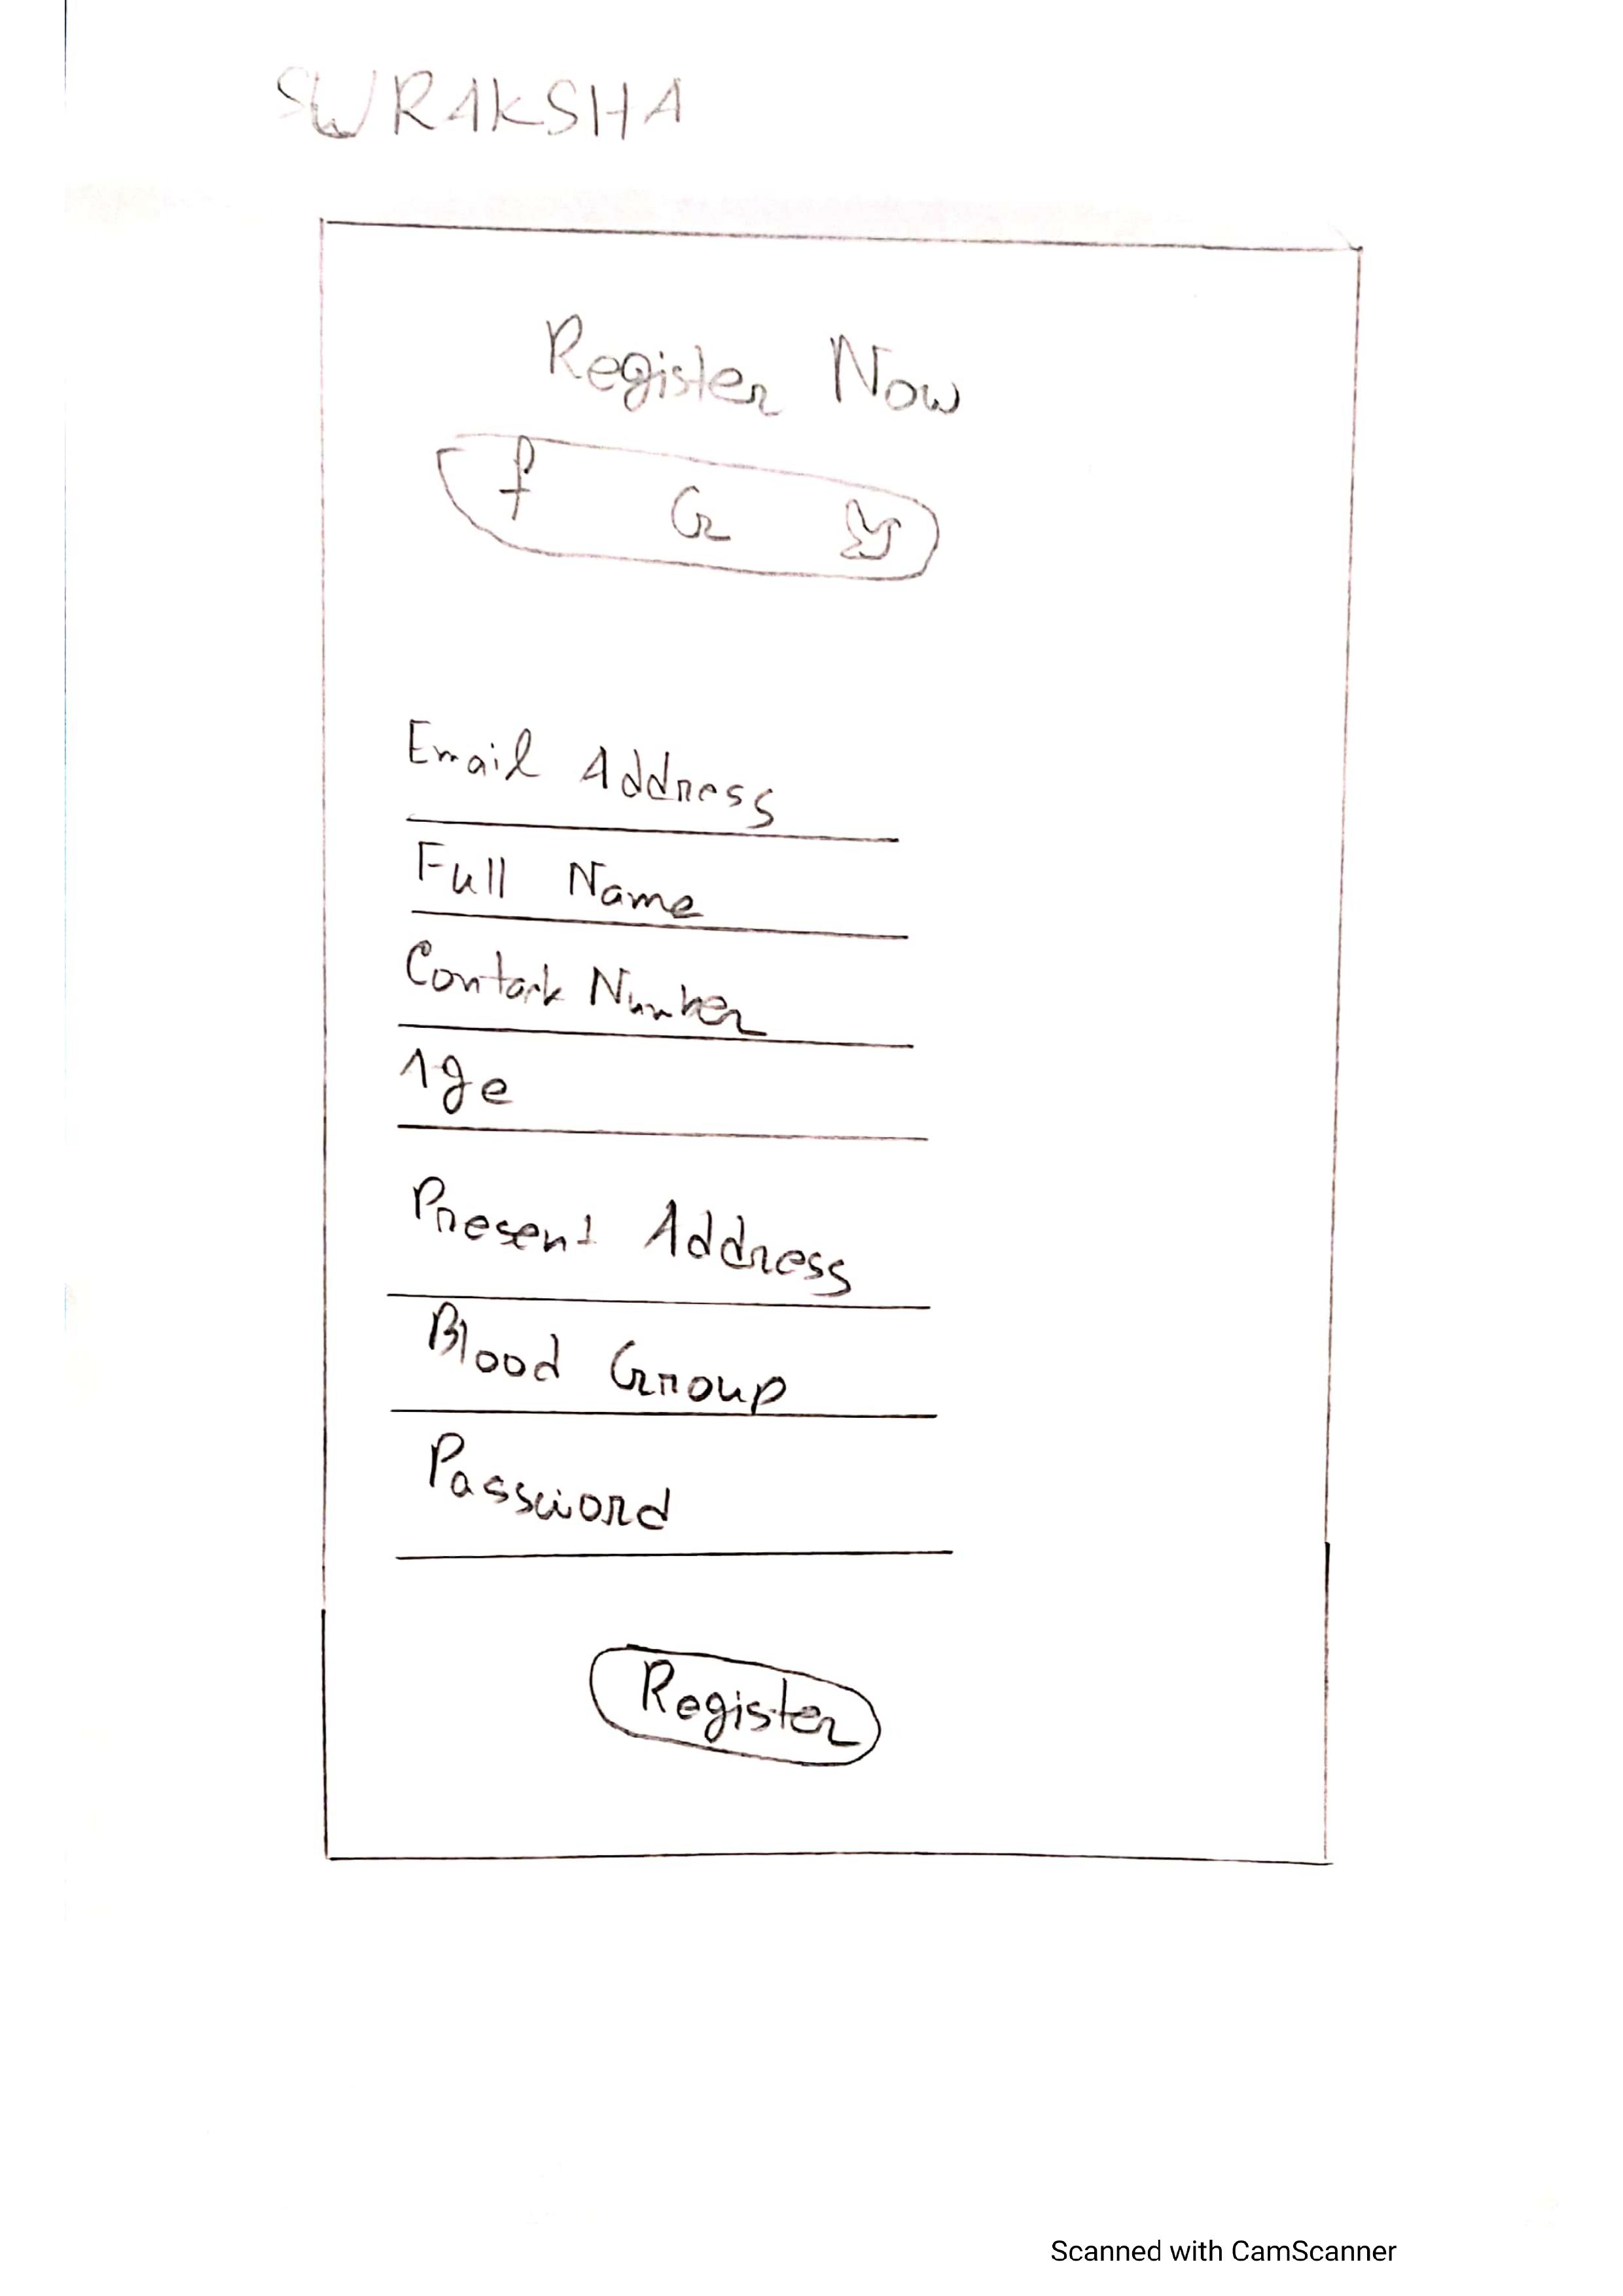 SWRAKSHA
Register Now
f G
Email Address
Full Name
Contact Number
Age
Present Address
Blood Group
Password
Register
Scanned with CamScanner